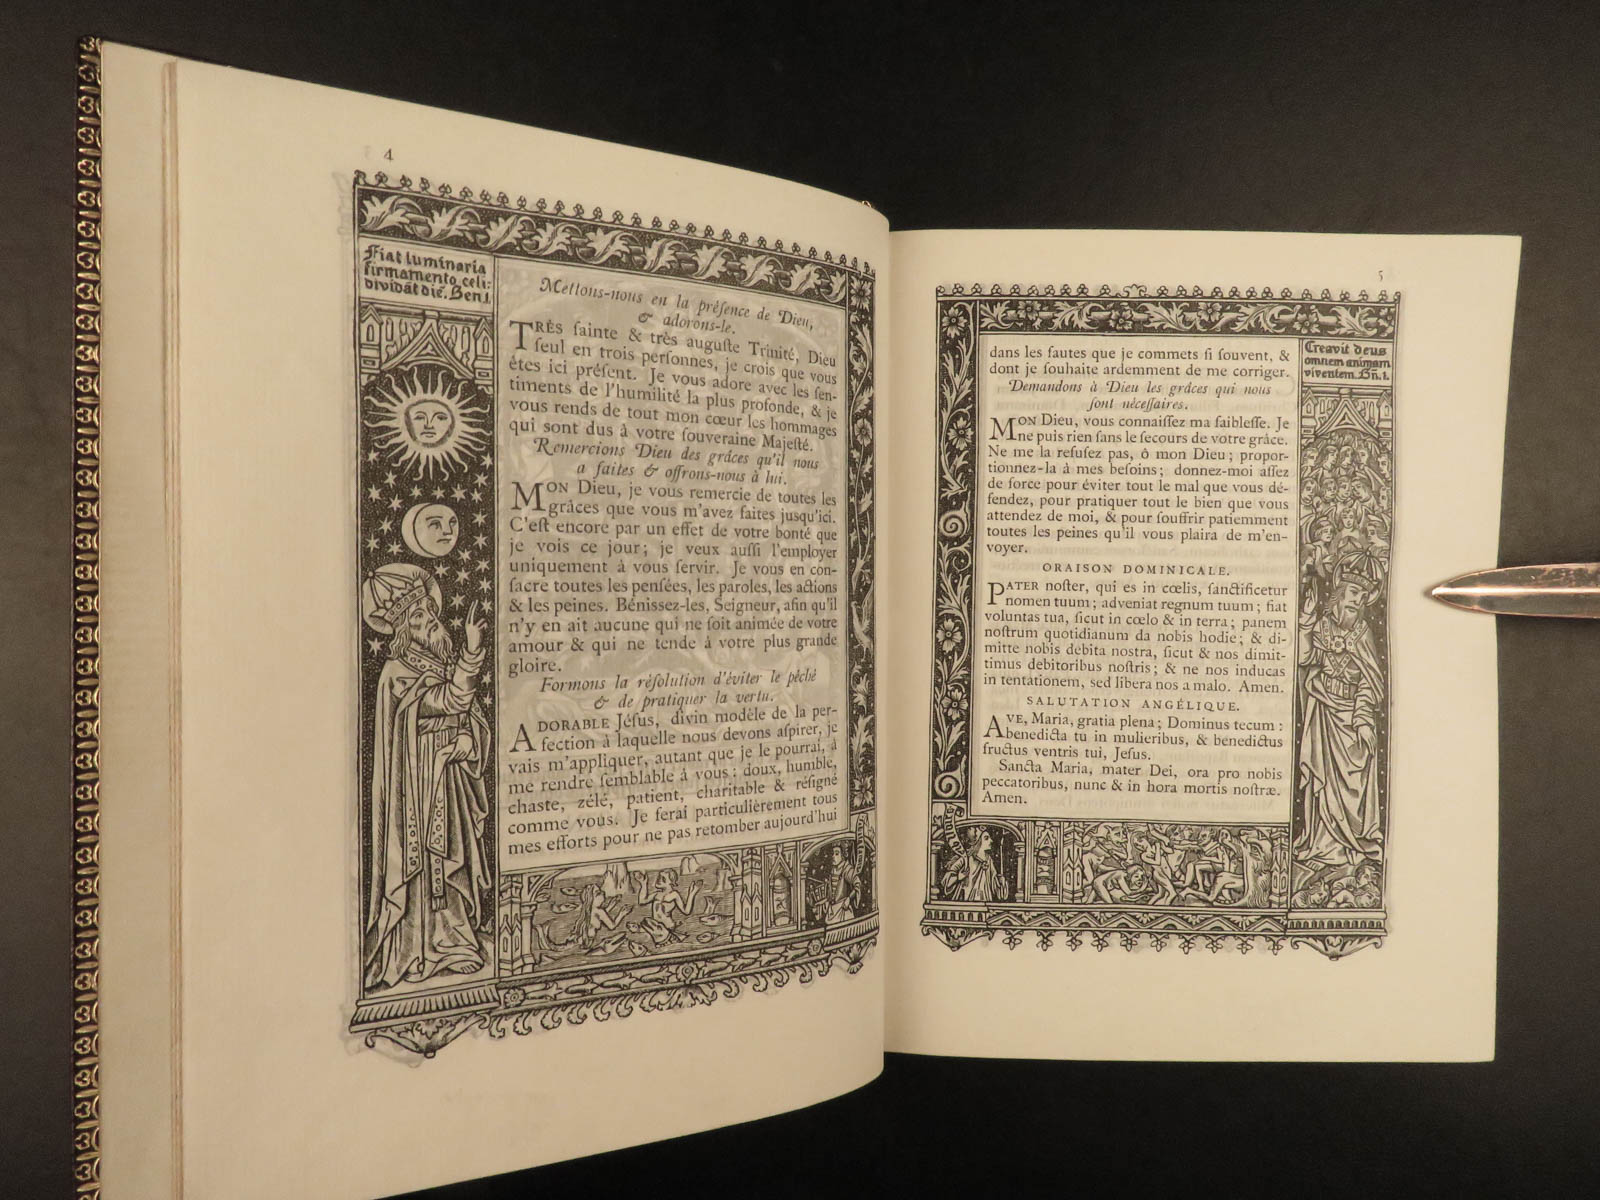 4
Fiat luminaria
firmamento celi:
dividāt diē. Gen. 1.
Mettons-nous en la préſence de Dieu,
& adorons-le.
TRÈS ſainte & très auguſte Trinité, Dieu
ſeul en trois perſonnes, je crois que vous
êtes ici préſent. Je vous adore avec les ſen-
timents de l'humilité la plus profonde, & je
vous rends de tout mon cœur les hommages
qui sont dus à votre ſouveraine Majeſté.
Remercions Dieu des grâces qu'il nous
a faites & offrons-nous à lui.
MON Dieu, je vous remercie de toutes les
grâces que vous m'avez faites juſqu'ici.
C'eſt encore par un effet de votre bonté que
je vois ce jour; je veux auſſi l'employer
uniquement à vous ſervir. Je vous en con-
ſacre toutes les penſées, les paroles, les actions
& les peines. Béniſſez-les, Seigneur, afin qu'il
n'y en ait aucune qui ne ſoit animée de votre
amour & qui ne tende à votre plus grande
gloire.
Formons la réſolution d'éviter le péché
& de pratiquer la vertu.
ADORABLE Jéſus, divin modèle de la per-
fection à laquelle nous devons aſpirer, je
vais m'appliquer, autant que je le pourrai, à
me rendre ſemblable à vous : doux, humble,
chaste, zélé, patient, charitable & réſigné
comme vous. Je ferai particulièrement tous
mes efforts pour ne pas retomber aujourd'hui
5
Creavit deus
omnem animam
viventem. Gñ. 1.
dans les fautes que je commets ſi ſouvent, &
dont je ſouhaite ardemment de me corriger.
Demandons à Dieu les grâces qui nous
ſont néceſſaires.
MON Dieu, vous connaiſſez ma faibleſſe. Je
ne puis rien ſans le ſecours de votre grâce.
Ne me la refuſez pas, ô mon Dieu; propor-
tionnez-la à mes beſoins; donnez-moi aſſez
de force pour éviter tout le mal que vous dé-
fendez, pour pratiquer tout le bien que vous
attendez de moi, & pour ſouffrir patiemment
toutes les peines qu'il vous plaira de m'en-
voyer.
ORAISON DOMINICALE.
PATER noſter, qui es in cœlis, ſanctificetur
nomen tuum; adveniat regnum tuum; fiat
voluntas tua, ſicut in cœlo & in terra; panem
noſtrum quotidianum da nobis hodie; & di-
mitte nobis debita nostra, ſicut & nos dimit-
timus debitoribus noſtris; & ne nos inducas
in tentationem, sed libera nos a malo. Amen.
SALUTATION ANGÉLIQUE.
AVE, Maria, gratia plena; Dominus tecum :
benedicta tu in mulieribus, & benedictus
fructus ventris tui, Jeſus.
Sancta Maria, mater Dei, ora pro nobis
peccatoribus, nunc & in hora mortis noſtræ.
Amen.